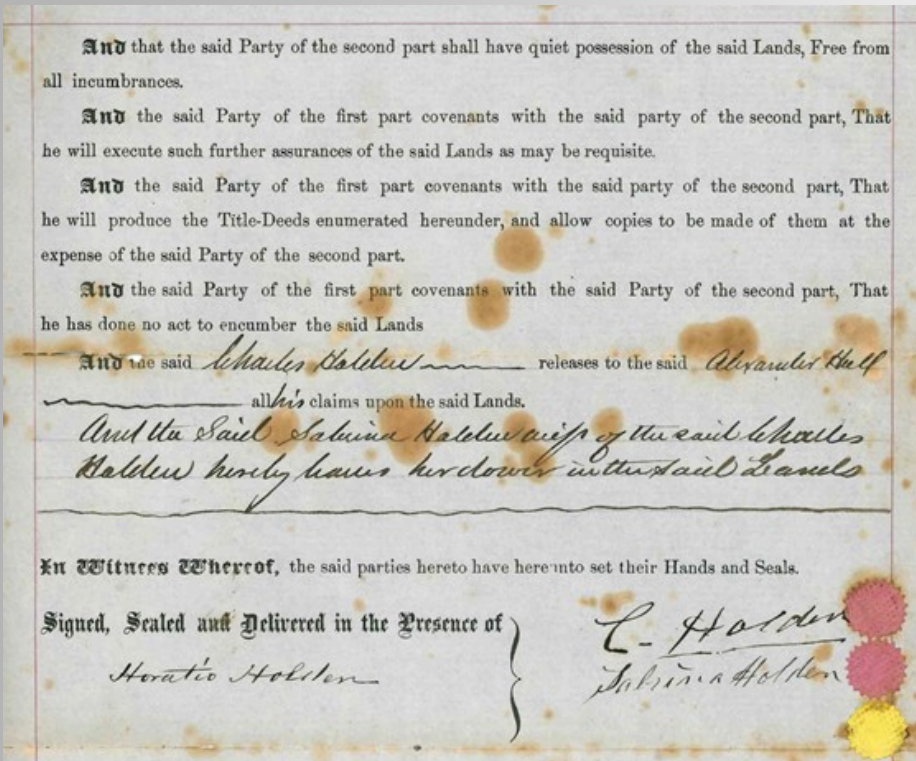 And that the said Party of the second part shall have quiet possession of the said Lands, Free from
all incumbrances.
And the said Party of the first part covenants with the said party of the second part, That
he will execute such further assurances of the said Lands as may be requisite.
And the said Party of the first part covenants with the said party of the second part, That
he will produce the Title-Deeds enumerated hereunder, and allow copies to be made of them at the
expense of the said Party of the second part.
And the said Party of the first part covenants with the said Party of the second part, That
he has done no act to encumber the said Lands
And the said Charles Holden releases to the said Alexander Hull
all his claims upon the said Lands.
And the Said Sabrina Holden wife of the said Charles
Holden hereby her dower in the said Lands
In Witness Whereof, the said parties hereto have hereunto set their Hands and Seals.
Signed, Sealed and Delivered in the Presence of
C. Holden
Horatio Holden
Sabrina Holden